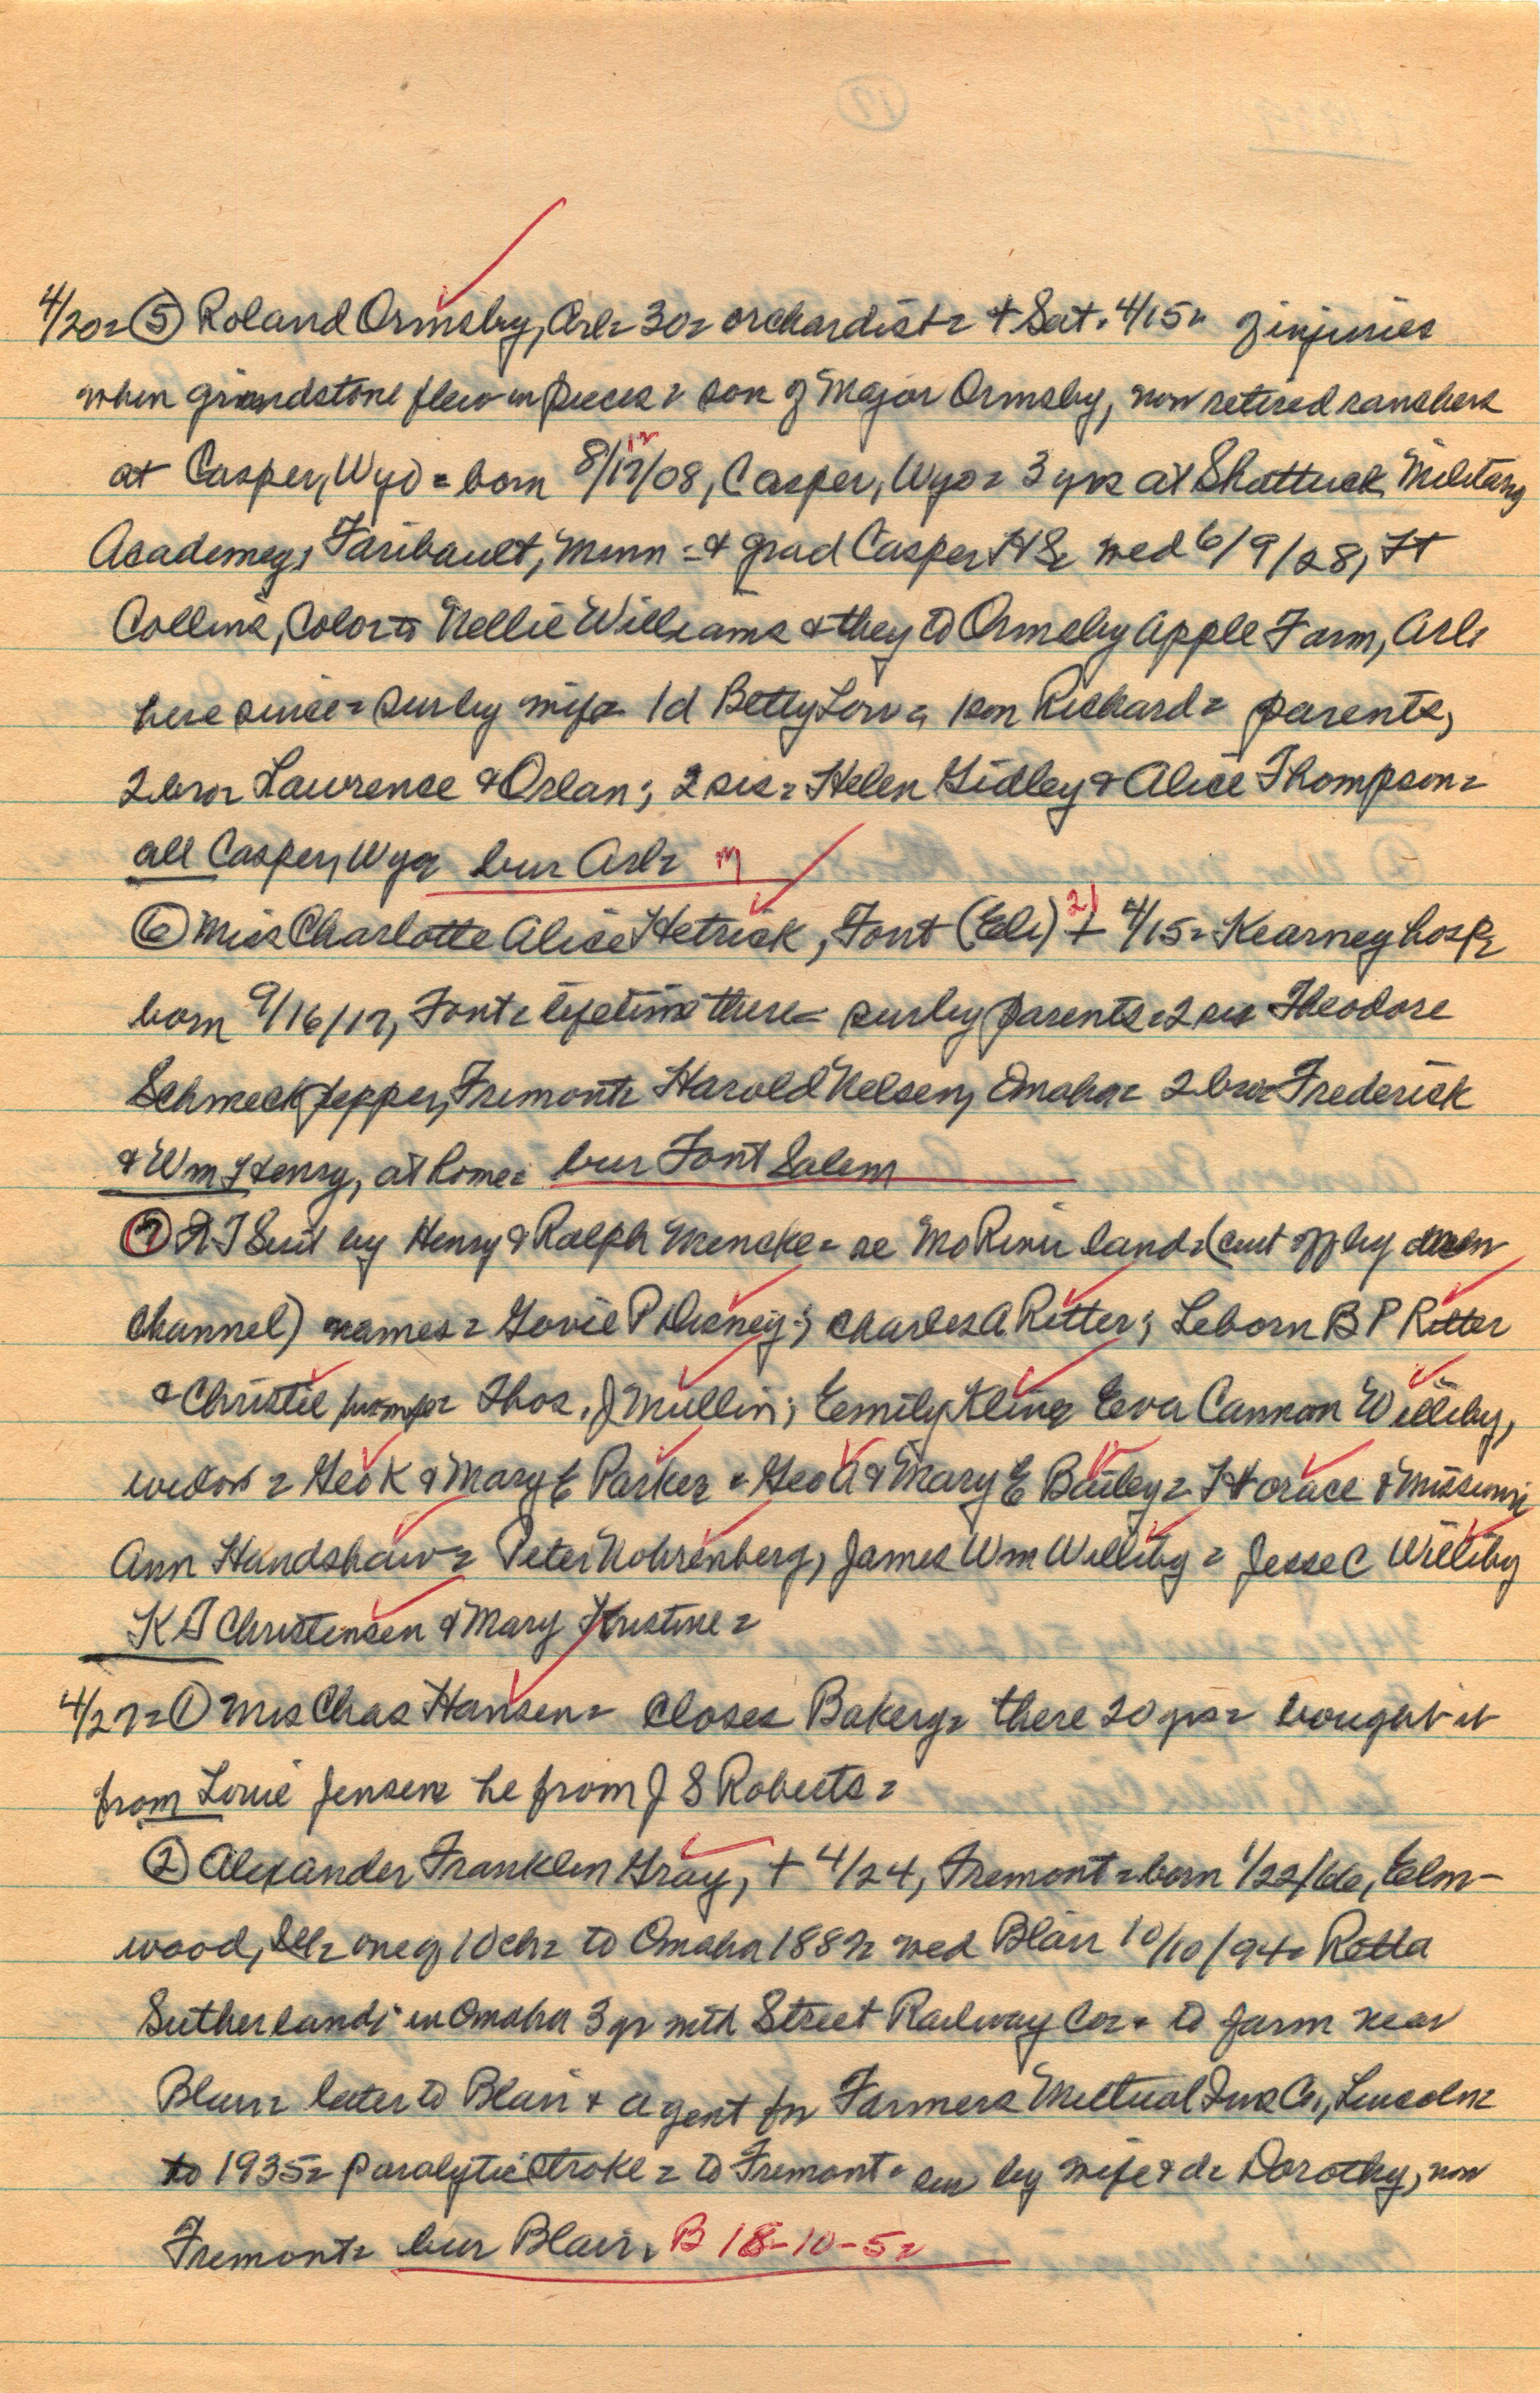 4/20= ⑤ Roland Ormsby, Arl= 30= orchardist= + Sat. 4/15= of injuries
when grindstone flew in pieces= son of Major Ormsby, now retired ranchers
at Casper, Wyo= born 8/12/08, Casper, Wyo= 3 yrs at Shattuck Military
12
Academy, Faribault, Minn= & grad Casper HS= wed 6/9/28, Ft
Collins, Colo= to Nellie Williams & they to Ormsby Apple Farm, Arl=
here since= sur by wife= 1d Betty Lou= 1 son Richard= parents,
2 bro= Lawrence & Orlan; 2 sis= Helen Gidley & Alice Thompson=
all Casper, Wyo= bur Arl= M
⑥ Miss Charlotte Alice Hetrick, Font (Eli) 21 + 4/15= Kearney hosp=
born 9/16/17, Font= lifetime there= sur by parents= 2 sis Theodore
Schmeckpepper, Fremont= Harold Nelsen, Omaha= 2 bro= Frederick
& Wm Henry, at home= bur Font Salem
⑦ QT Suit by Henry & Ralph Mencke= re Mo River land= (cut off by
channel) names= Govie P Disney; Charles A Ritter; Leborn B P Ritter
& Christie Thos. J Mullin; Emily Kling Eva Cannon Williby,
widow= Geo K & Mary E Parker= Geo A & Mary E Bailey= Horace & Missouri
Ann Handshaw= Peter Nohrenberg, James Wm Williby= Jesse C Williby
K T Christensen & Mary Kristine=
4/27= ① Mrs Chas Hansen= closes Bakery= there 20 yrs= bought it
from Louie Jensen= he from J S Roberts=
② Alexander Franklin Gray, + 4/24, Fremont= born 1/22/66, Elm-
wood, Ill= one of 10 ch= to Omaha 1887= wed Blair 10/10/94= Retta
Sutherland; in Omaha 3 yr with Street Railway Co= to farm near
Blair= later to Blair & agent for Farmers Mutual Ins Co., Lincoln=
to 1935= paralytic stroke= to Fremont= sur by wife & d= Dorothy, now
Fremont= bur Blair. B 18-10-5=